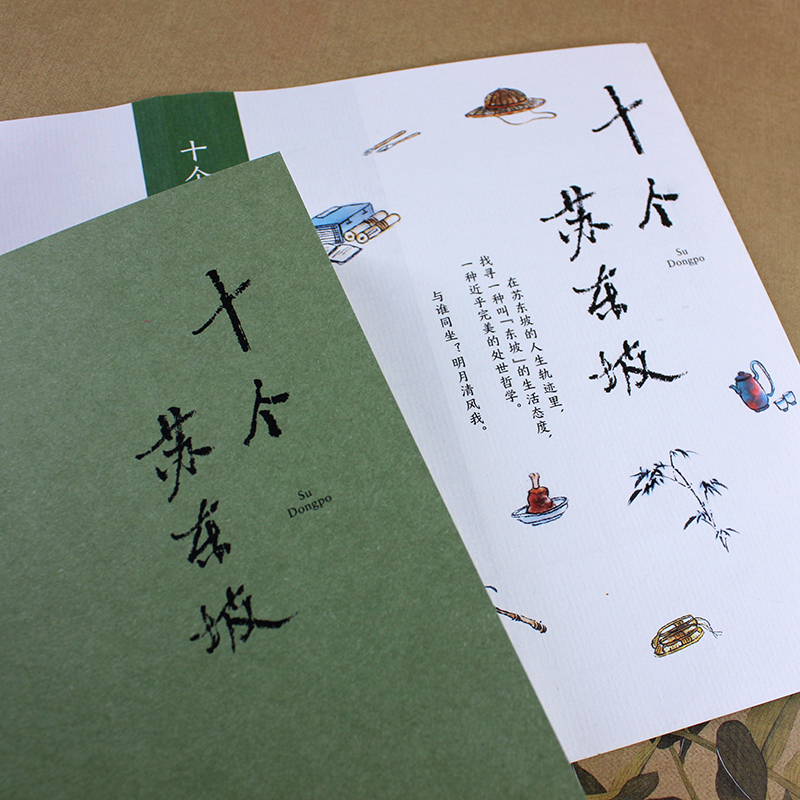 十个
苏东坡
Su
Dongpo
在苏东坡的人生轨迹里，
找寻一种叫「东坡」的生活态度，
一种近乎完美的处世哲学。
与谁同坐？明月清风我。
十个
十个
苏东坡
Su
Dongpo